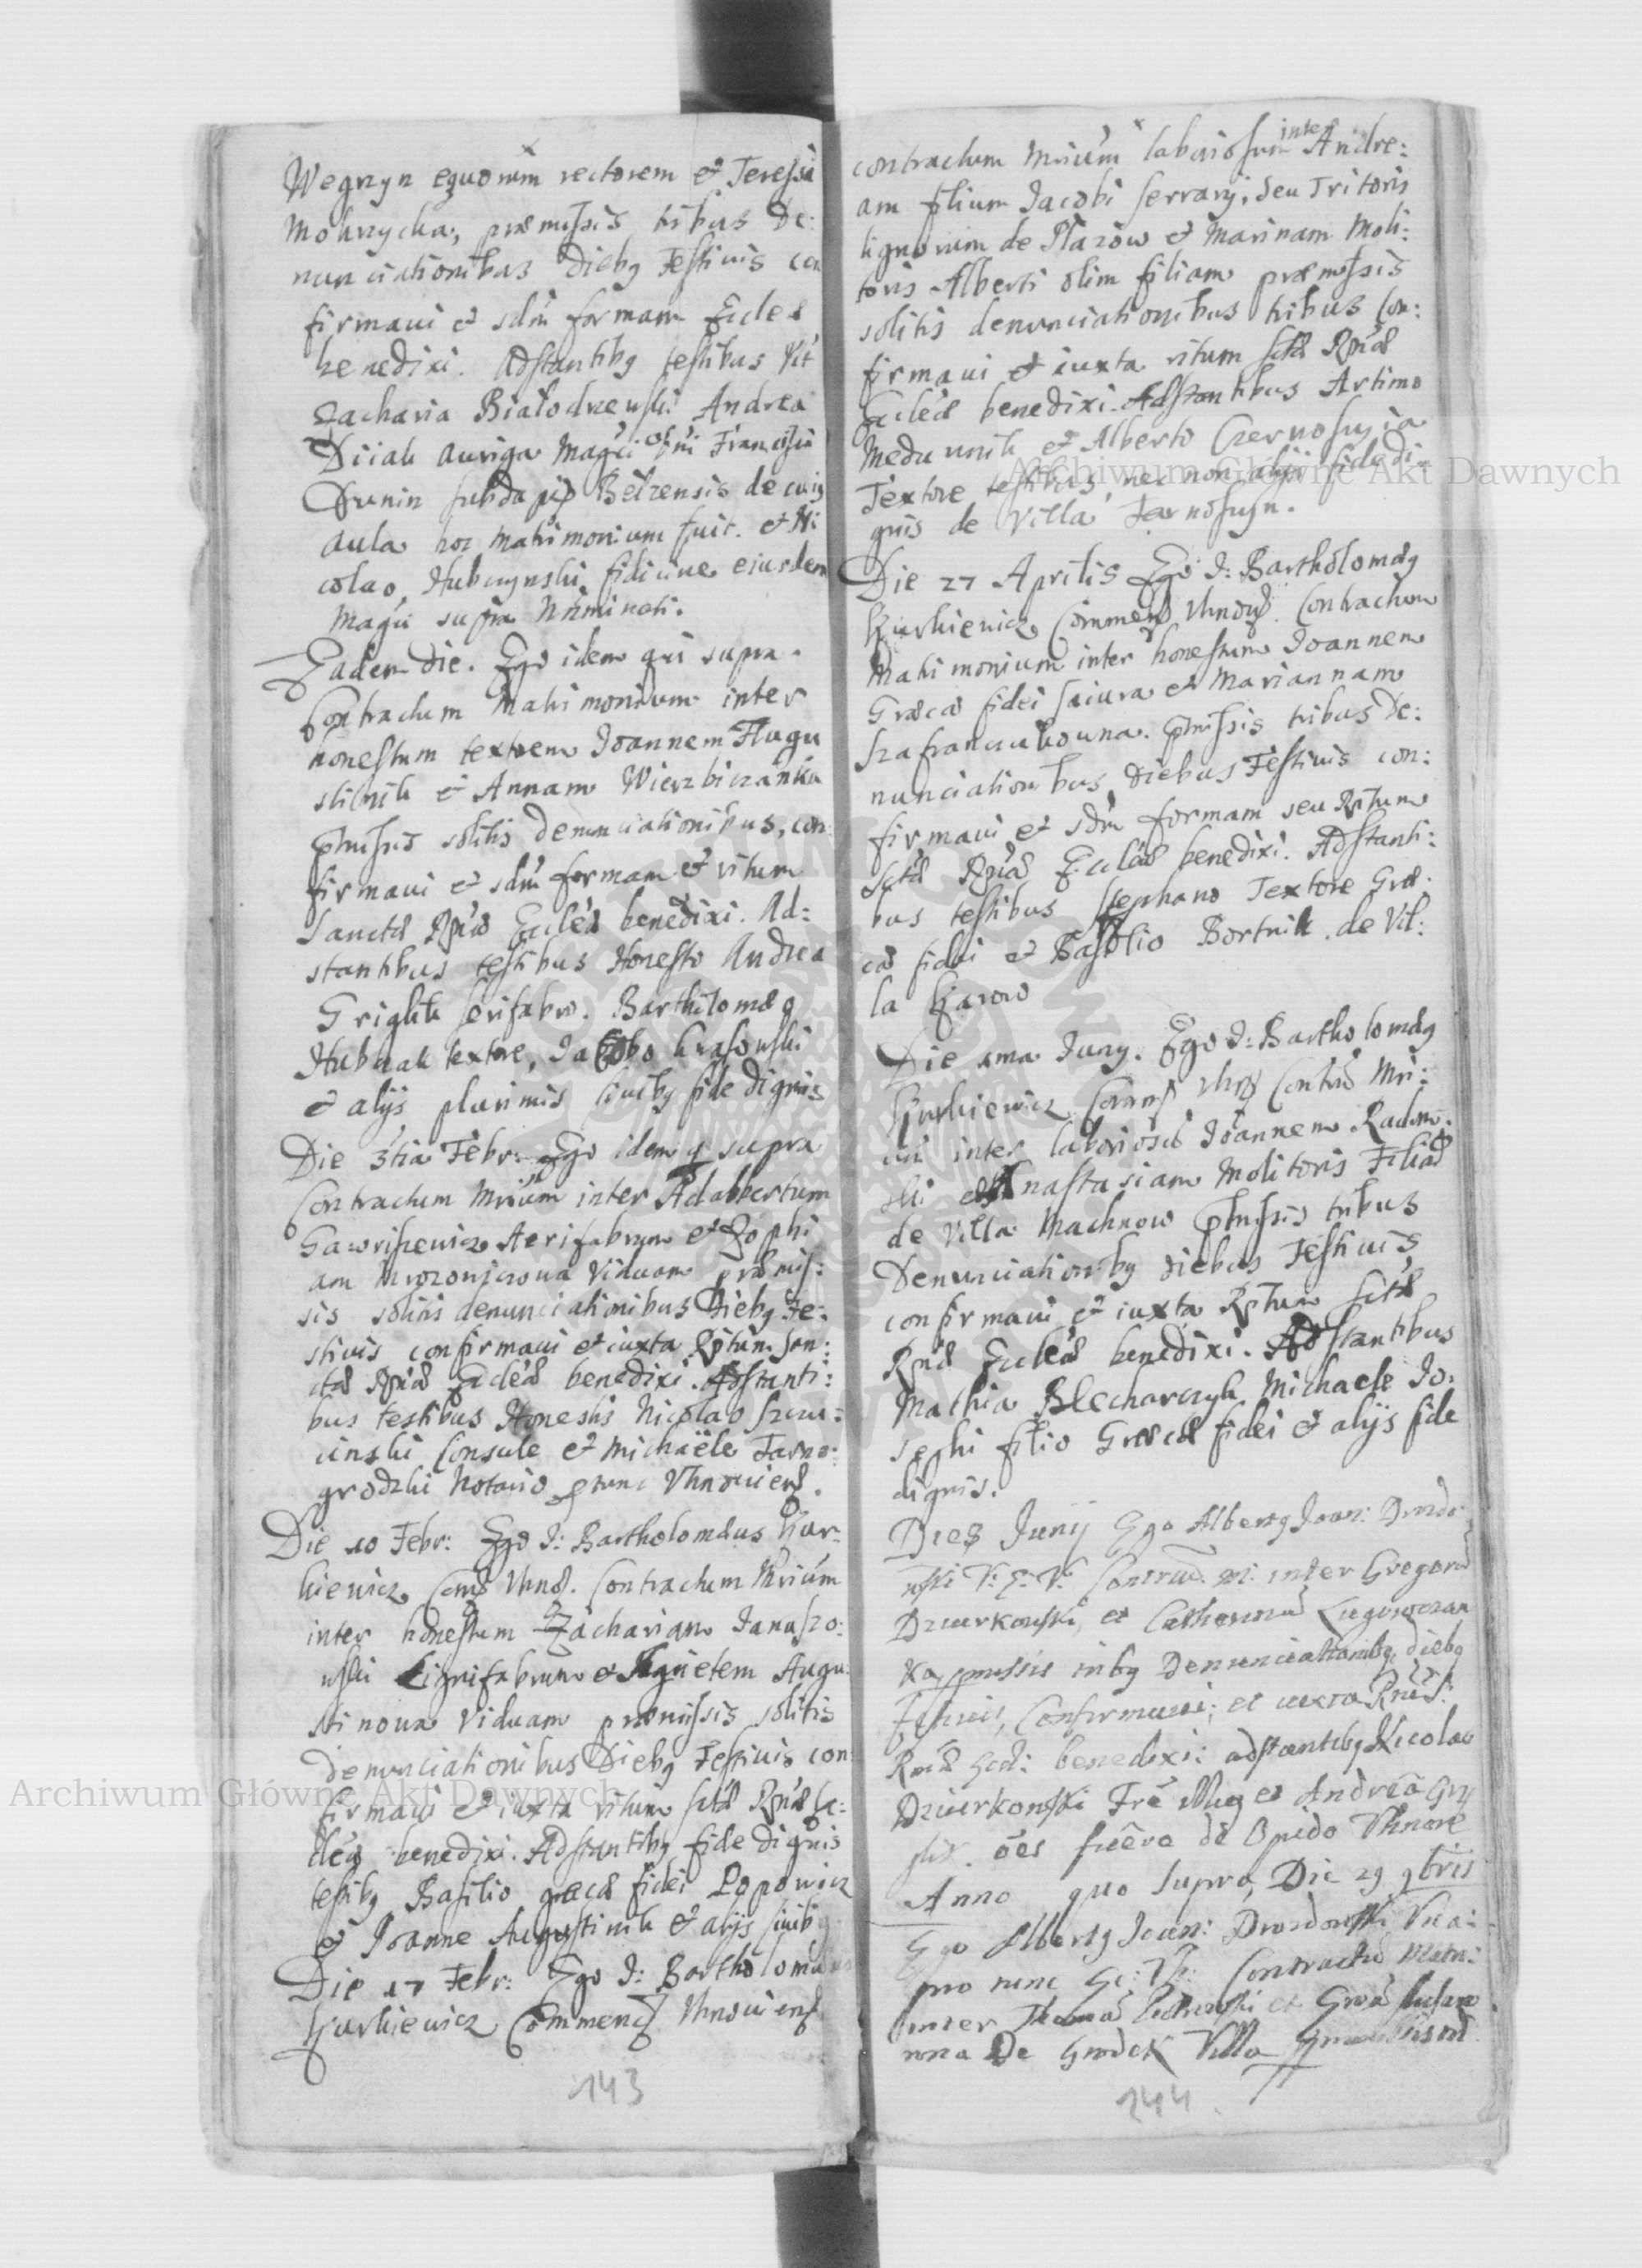 Wegrzyn equorum rectorem et Teressa
Mokrzycka, præmissis tribus de:
nunciationibus dieby Festiuis con
firmaui et sdm formam Eccles
benedixi. Adstantiby testibus
Zacharia Białodrzewski Andrea
Diiak auriga Magci Dni Francisci
Drunin subdapif Belzensis de cuiq
aula hoc matrimonium fuit. et Ni
colao, Hubczynski fidicine eiusdem
Magci supra Nominati.
Eadem die. Ego idem qui supra.
Contractum Matrimonium inter
honestum textorem Joannem Augu
stinik et Annam Wierzbiczanka
pmissis solitis denunciationibus, con
firmaui et sdm formam et ritum
Sanctæ Rnæ Ecclæ benedixi. Ad:
stantibus testibus Honesto Andrea
Griglik serifabro. Bartholomæq
Hubczak textore, Jacobo Krasowski
et alijs plurimis ciuiby fide dignis
Die 3tia Febr: Ego idem q supra
Contractum Mrium inter Adalbertum
Gawrisiewicz Aerifabrum et Zophi
am Mrozowiczowa Viduam præmis:
sis solitis denunciationibus Dieby Fe:
stiuis confirmaui et iuxta Ritum San:
ctæ Rnæ Ecclæ benedixi. Adstanti:
bus testibus Honestis Nicolao Szczu:
cinski Consule et Michaële Tarno:
grodzki Notario ptunc Vhnouien.
Die 10 Febr: Ego J: Bartholomæus Kur:
kiewicz Com Vhno. Contractum Mrium
inter honestum Zachariam Januszo:
wski Lignifabrum et Agnetem Augu:
stinowa Viduam præmissis solitis
denunciationibus Dieby Festiuis con
firmaui et iuxta ritum sctæ Rnæ Ec:
clæ benedixi. Adstantiby fide dignis
testiby Basilio græcæ fidei Popowicz
et Joanne Augustinik et alijs ciuiby
Die 17 Febr: Ego J: Bartholomæus
Kurkiewicz Commen Vhnouien
143
contractum Mrium laboriosum inter Andre:
am filium Jacobi serrary, seu Tritoris
lignorum de Płazow et Marinam Moli:
toris Alberti olim filiam præmissis
solitis denunciationibus tribus Con:
firmaui et iuxta ritum sctæ Rnæ
Ecclæ benedixi. Adstantibus Artimo
Medunik et Alberto Czernosuyia
Textore testibus, nec non alijs fide di
gnis de Villa Tarnosuyn.
Die 27 Aprilis Ego J: Bartholomæq
Kurkiewicz Commen Vhno. Contractum
Matrimonium inter honestum Joannem
Græcæ fidei Saiura et Mariannam
Szafranczukowna. pmissis tribus De:
nunciationibus Diebus Festiuis con:
firmaui et sdm formam seu Ritum
sctæ Rnæ Ecclæ benedixi. Adstanti:
bus testibus Stephano Textore Græ:
cæ fidei et Basilio Bortnik de Vil:
la Karow
Die 1ma Juny. Ego J: Bartholomæq
Kurkiewicz Comm Vhno Contra Mri:
um inter laboriosu Joannem Radom:
ski et Anastasiam Molitoris Filia
de Villa Machnow pmissis tribus
Denunciationiby diebus Festiuis
confirmaui et iuxta Ritum sctæ
Rnæ Ecclæ benedixi. Adstantibus
Mathia Blecharczyk Michaele Jo:
sephi filio Græcæ fidei et alijs fide
dignis.
Die 8 Junij Ego Alberty Joan: Drozdo
wski V: E: V: Contract m: inter Gregoriu
Dziurkowski, et Catharina
ka pmissis triby Denunciationiby dieby
Festiuis, Confirmaui; et iuxta
Rnæ Eccl: benedixi: adstantiby Nicolao
Dziurkowski et Andrea Gry
glik. oes de Opido Vhnoue
Anno quo supra, Die 29 9bris
Ego Alberty Joan: Drozdowski Vica:
pro nunc Ec: Vh: Contractu Matri:
inter Thoma et
de Grodek Villa
144